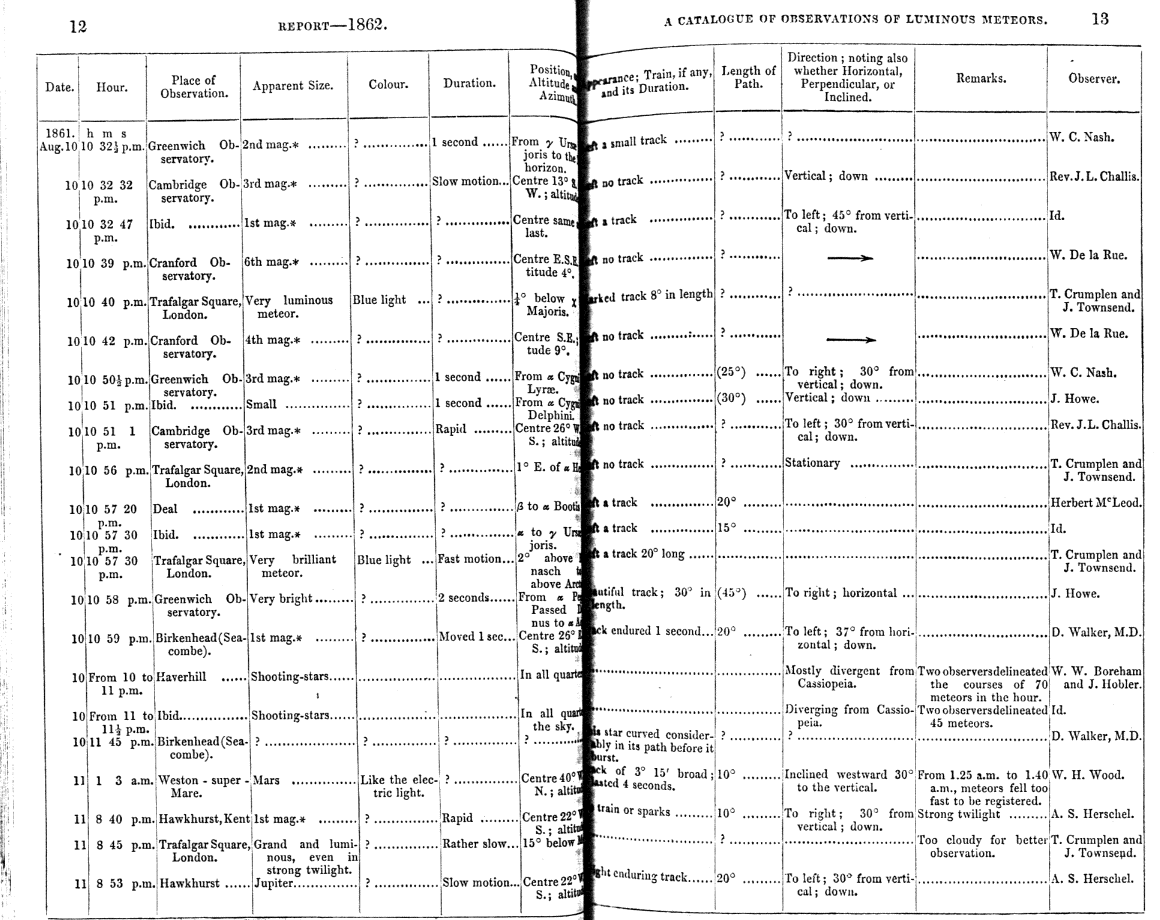 12 REPORT—1862.
Date. Hour. Place of Observation. Apparent Size. Colour. Duration. Position, Altitude Azimuth
1861. h m s
Aug.10 10 32½ p.m. Greenwich Ob- 2nd mag.* ......... ? ............. 1 second ...... From γ Ursæ
servatory. joris to the
horizon.
10 10 32 32 Cambridge Ob- 3rd mag.* ......... ? .............. Slow motion... Centre 13°
p.m. servatory. W.; altitude
10 10 32 47 Ibid. ............ 1st mag.* ......... ? .............. ? .............. Centre same
p.m. last.
10 10 39 p.m. Cranford Ob- 6th mag.* ......... ? .............. ? .............. Centre E.S.E.
servatory. titude 4°.
10 10 40 p.m. Trafalgar Square, Very luminous Blue light ... ? .............. ¼° below χ
London. meteor. Majoris.
10 10 42 p.m. Cranford Ob- 4th mag.* ......... ? .............. ? .............. Centre S.E.;
servatory. tude 9°.
10 10 50½ p.m. Greenwich Ob- 3rd mag.* ......... ? .............. 1 second ...... From α Cygni
servatory. Lyræ.
10 10 51 p.m. Ibid. ............ Small ............... ? .............. 1 second ...... From α Cygni
Delphini.
10 10 51 1 Cambridge Ob- 3rd mag.* ......... ? .............. Rapid ......... Centre 26° W.
p.m. servatory. S.; altitude
10 10 56 p.m. Trafalgar Square, 2nd mag.* ......... ? .............. ? .............. 1° E. of α
London.
10 10 57 20 Deal ............ 1st mag.* ......... ? .............. ? .............. β to α Bootis
p.m.
10 10 57 30 Ibid. ............ 1st mag.* ......... ? .............. ? .............. α to γ Ursæ
p.m. joris.
10 10 57 30 Trafalgar Square, Very brilliant Blue light ... Fast motion... 2° above
p.m. London. meteor. nasch
above
10 10 58 p.m. Greenwich Ob- Very bright ......... ? .............. 2 seconds...... From α
servatory. Passed
nus to α
10 10 59 p.m. Birkenhead (Sea- 1st mag.* ......... ? .............. Moved 1 sec... Centre 26°
combe). S.; altitude
10 From 10 to Haverhill ...... Shooting-stars..... ................ ................ In all quarters
11 p.m.
10 From 11 to Ibid............... Shooting-stars..... ................ ................ In all
11½ p.m. the sky.
10 11 45 p.m. Birkenhead (Sea- ? .................... ? .............. ? .............. ? ............
combe).
11 1 3 a.m. Weston - super - Mars ............... Like the elec- ? .............. Centre 40°
Mare. tric light. N.; altitude
11 8 40 p.m. Hawkhurst, Kent 1st mag.* ......... ? .............. Rapid ......... Centre 22°
S.; altitude
11 8 45 p.m. Trafalgar Square, Grand and lumi- ? .............. Rather slow... 15° below
London. nous, even in
strong twilight.
11 8 53 p.m. Hawkhurst ...... Jupiter............... ? .............. Slow motion... Centre 22°
S.; altitude
A CATALOGUE OF OBSERVATIONS OF LUMINOUS METEORS. 13
Train, if any, and its Duration. Length of Path. Direction; noting also whether Horizontal, Perpendicular, or Inclined. Remarks. Observer.
a small track ......... ? ............ ? .............................. .............................. W. C. Nash.
no track ............... ? ............ Vertical; down ......... .............................. Rev. J. L. Challis.
a track ............... ? ............ To left; 45° from verti- .............................. Id.
cal; down.
no track ............... ? ............ → .............................. W. De la Rue.
track 8° in length ? ............ ? .............................. .............................. T. Crumplen and
J. Townsend.
no track ............... ? ............ → .............................. W. De la Rue.
no track ............... (25°) ...... To right; 30° from .............................. W. C. Nash.
vertical; down.
no track ............... (30°) ...... Vertical; down ......... .............................. J. Howe.
no track ............... ? ............ To left; 30° from verti- .............................. Rev. J. L. Challis.
cal; down.
no track ............... ? ............ Stationary ............... .............................. T. Crumplen and
J. Townsend.
a track ............... 20° .............................. .............................. Herbert McLeod.
a track ............... 15° .............................. .............................. Id.
a track 20° long ...... .............................. .............................. T. Crumplen and
J. Townsend.
track; 30° in (45°) ...... To right; horizontal ... .............................. J. Howe.
length.
endured 1 second... 20° ......... To left; 37° from hori- .............................. D. Walker, M.D.
zontal; down.
.............................. ............... Mostly divergent from Two observers delineated W. W. Boreham
Cassiopeia. the courses of 70 and J. Hobler.
meteors in the hour.
.............................. ............... Diverging from Cassio- Two observers delineated Id.
peia. 45 meteors.
star curved consider- ? ............ ? .............................. .............................. D. Walker, M.D.
ably in its path before it
burst.
of 3° 15′ broad; 10° ......... Inclined westward 30° From 1.25 a.m. to 1.40 W. H. Wood.
lasted 4 seconds. to the vertical. a.m., meteors fell too
fast to be registered.
train or sparks ......... 10° ......... To right; 30° from Strong twilight ......... A. S. Herschel.
vertical; down.
.............................. ? ............ .............................. Too cloudy for better T. Crumplen and
observation. J. Townsend.
enduring track...... 20° ......... To left; 30° from verti- .............................. A. S. Herschel.
cal; down.